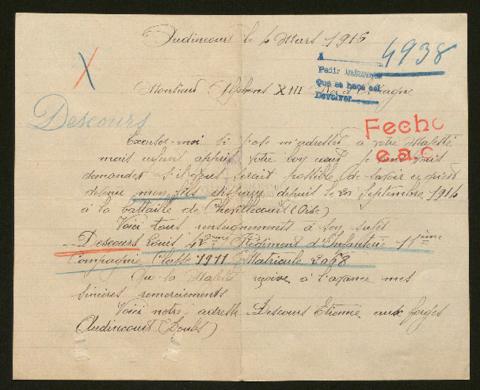 Audincourt le 6 Mars 1916
4938
A
Pedir
Que se haga así
Devolver
Monsieur Alphonse XIII Roi d'Espagne
Descours
Fecho
e.a.c.
Excusez-moi si j'ose m'adresser à votre Majesté
mais ayant appris votre bon
demander s'il vous serait possible de savoir ce qu'est
devenu mon fils disparu depuis le 20 Septembre 1914
à la bataille de (Oise)
Voici tous renseignements à son sujet
Descours Louis 42ème Régiment d'Infanterie 11ième
Compagnie Classe 1911 Matricule
Que sa Majesté reçoive à l'avance mes
sincères remerciements.
Voici notre adresse Descours Etienne aux forges
Audincourt (Doubs)